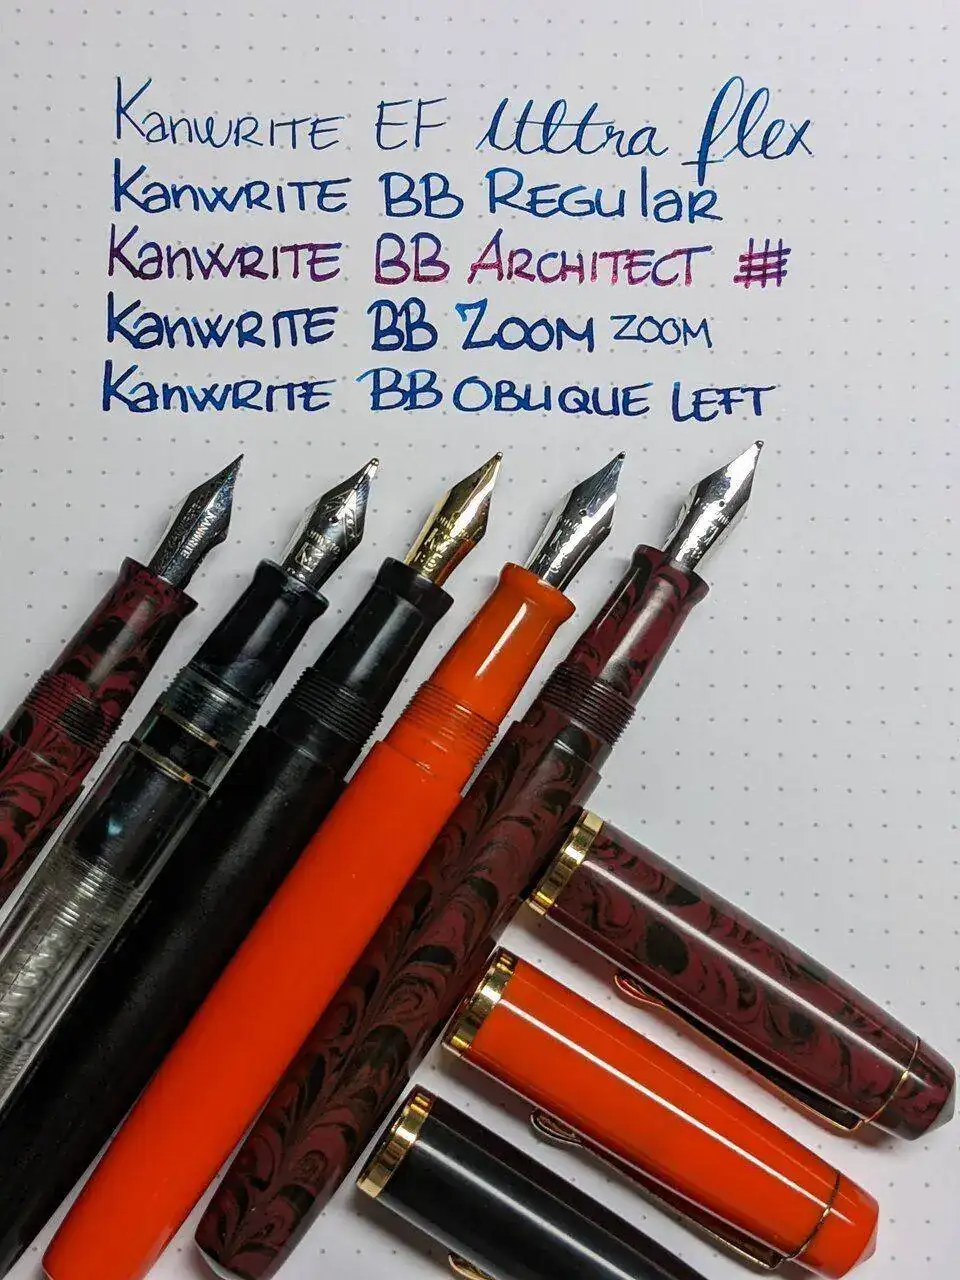 KanWRITE EF Ultra flex
KanWRITE BB REGulaR
KanWRITE BB ARCHITECT #
KanWRITE BB ZOOM ZOOM
KanWRITE BB OBLIQUE LEFT
KANWRITE